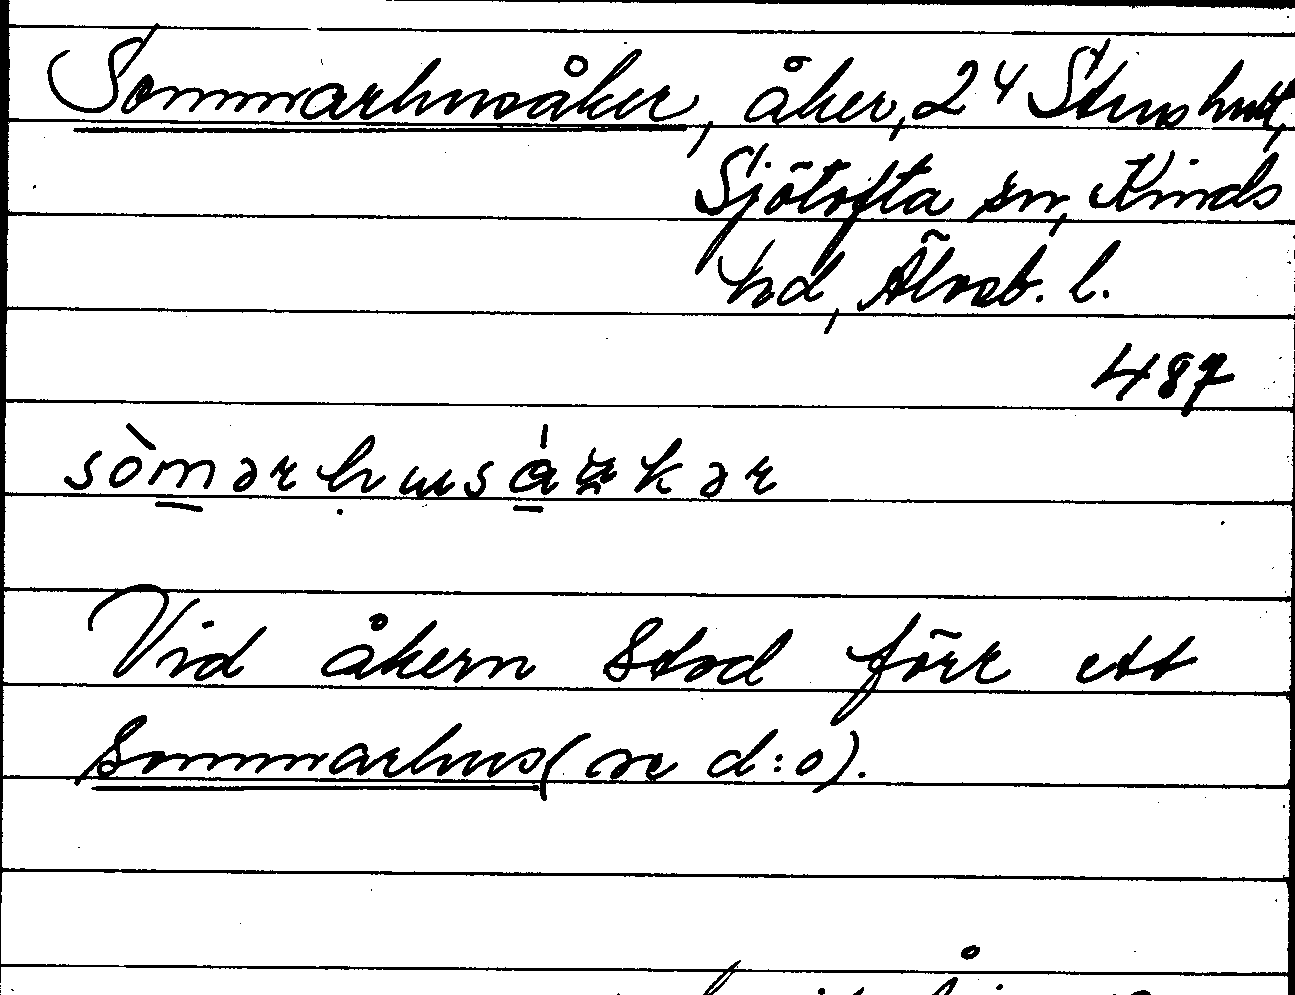 Sommarhusåker, åker, 24 Stenshult,
Sjötofta sn, Kinds
hd, Älvsb. l.
487
Vid åkern stod förr ett
sommarhus (se d:o).